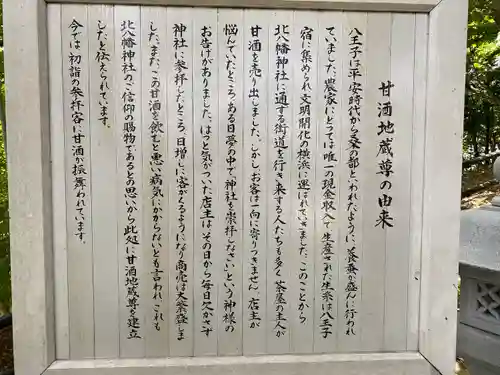 甘酒地蔵尊の由来
八王子は平安時代から桑の都といわれたように、養蚕が盛んに行われ
ていました。農家にとっては唯一の現金収入で生産された生糸は八王子
宿に集められ、文明開化の横浜に運ばれていきました。このことから
北八幡神社に通ずる街道を行き来する人たちも多く茶屋の主人が
甘酒を売り出しました。しかし、お客は一向に寄りつきません。店主が
悩んでいたところ、ある日夢の中で、「神社を崇拝しなさい」という神様の
お告げがありました。はっと気がついた店主は、その日から毎日欠かさず
神社に参拝したところ、日増しに客がくるようになり商売は大繁盛しま
した。また、この甘酒を飲むと悪い病気にかからないとも言われ、これも
北八幡神社のご信仰の賜物であるとの思いから此処に甘酒地蔵尊を建立
したと伝えられています。
今では、初詣の参拝客に甘酒が振舞われています。